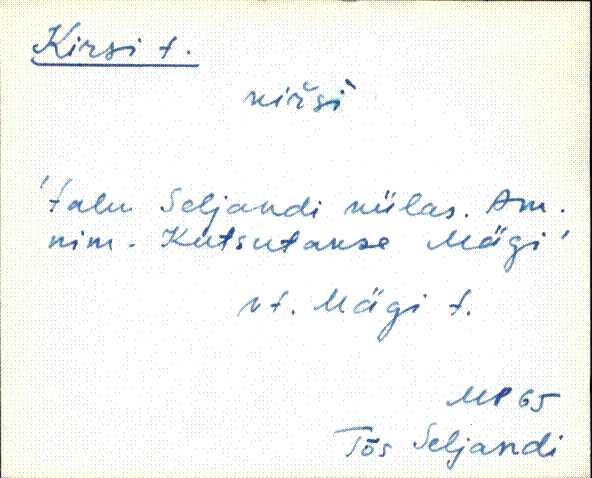 Kirsi t.
kir̆si`
'talu Seljandi külas. Am.
nim. Kutsutakse Mägi'
vt. Mägi t.
MP 65
Tõs Seljandi